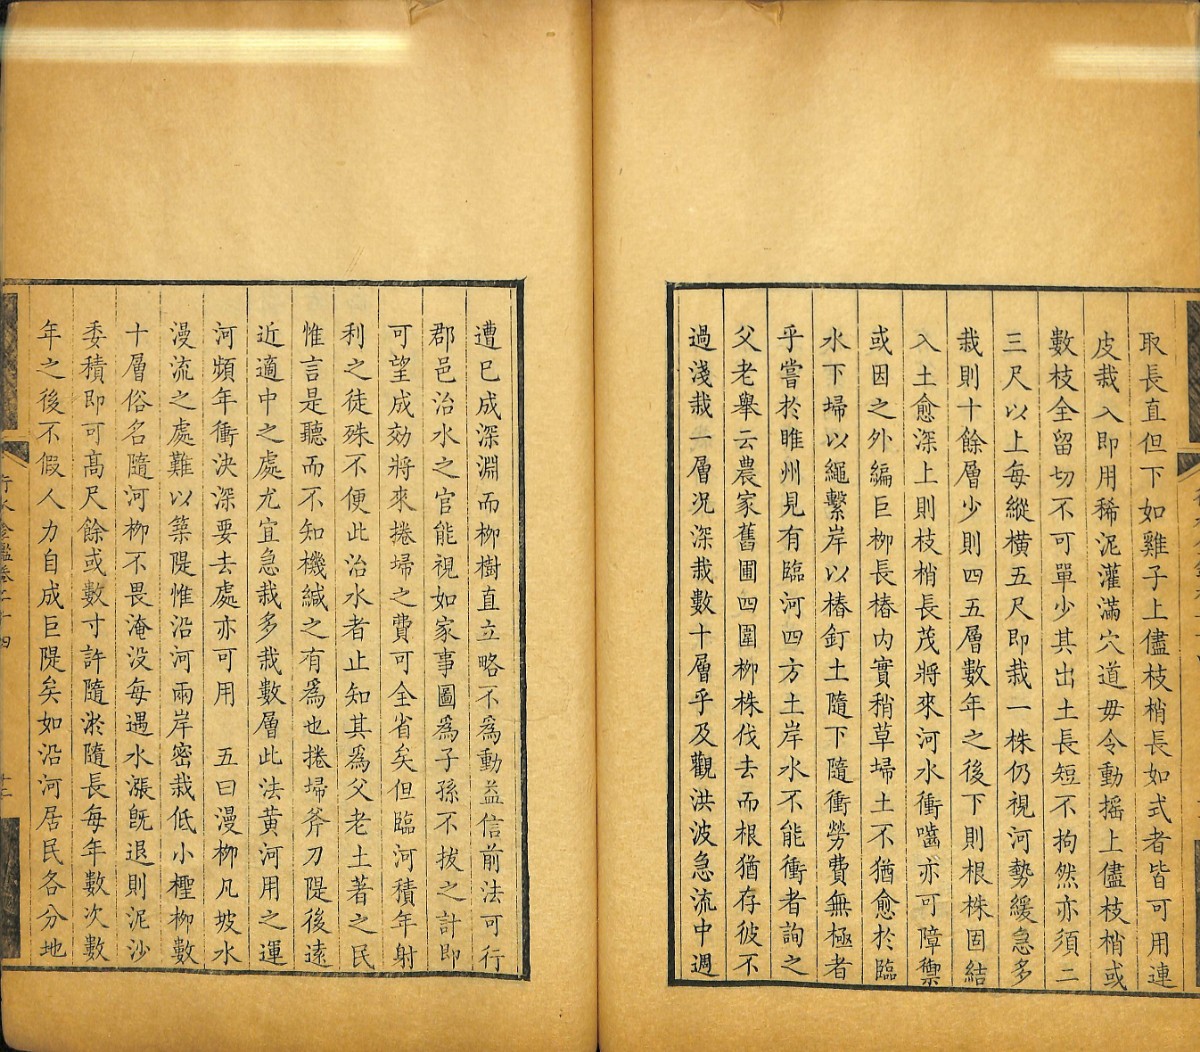 取長直但下如雞子上儘枝梢長如式者皆可用連
皮栽入即用稀泥灌滿穴道毋令動搖上儘枝梢或
數枝全留切不可單少其出土長短不拘然亦須二
三尺以上每縱橫五尺即栽一株仍視河勢緩急多
栽則十餘層少則四五層數年之後下則根株固結
入土愈深上則枝梢長茂將來河水衝嚙亦可障禦
或因之外編巨柳長樁內實稍草埽土不猶愈於臨
水下埽以繩繫岸以樁釘土隨下隨衝勞費無極者
乎嘗於睢州見有臨河四方土岸水不能衝者詢之
父老舉云農家舊圃四圍柳株伐去而根猶存彼不
過淺栽一層况深栽數十層乎及觀洪波急流中週
遭已成深淵而柳樹直立略不為動益信前法可行
郡邑治水之官能視如家事圖為子孫不拔之計即
可望成効將來捲埽之費可全省矣但臨河積年射
利之徒殊不便此治水者止知其為父老土著之民
惟言是聽而不知機緘之有為也捲埽斧刀隄後遠
近適中之處尤宜急栽多栽數層此法黃河用之運
河頻年衝決深要去處亦可用　五曰漫柳凡坡水
漫流之處難以築隄惟沿河兩岸密栽低小檉柳數
十層俗名隨河柳不畏淹沒每遇水漲旣退則泥沙
委積即可高尺餘或數寸許隨淤隨長每年數次數
年之後不假人力自成巨隄矣如沿河居民各分地
行水金鑑卷二十四